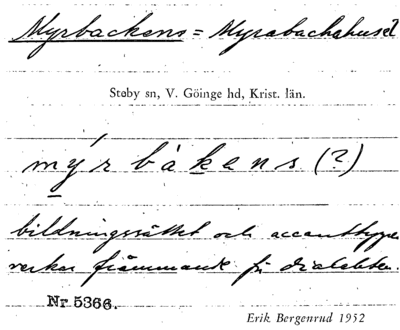 Myrbackens = Myrabackahuset
Støby sn, V. Göinge hd, Krist. län.
mýrbàkens (?)
bildningssättet och accenttypen
verkar främmande för dialekten.
Nr 5366.
Erik Bergenrud 1952